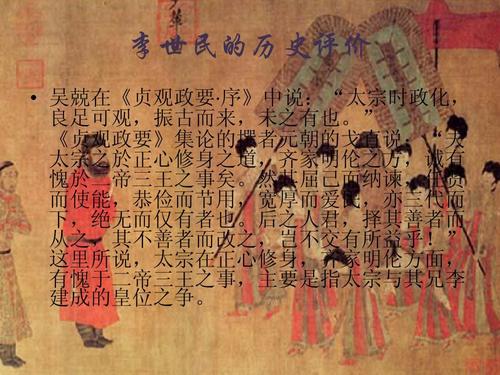 李世民的历史评价
• 吴兢在《贞观政要·序》中说：“太宗时政化，
良足可观，振古而来，未之有也。”
《贞观政要》集论的撰者元朝的戈直说，“夫
太宗之於正心修身之道，齐家明伦之方，诚有
愧於二帝三王之事矣。然其屈己而纳谏，任贤
而使能，恭俭而节用，宽厚而爱民，亦三代而
下，绝无而仅有者也。后之人君，择其善者而
从之，其不善者而改之，岂不交有所益乎！”
这里所说，太宗在正心修身，齐家明伦方面，
有愧于二帝三王之事，主要是指太宗与其兄李
建成的皇位之争。